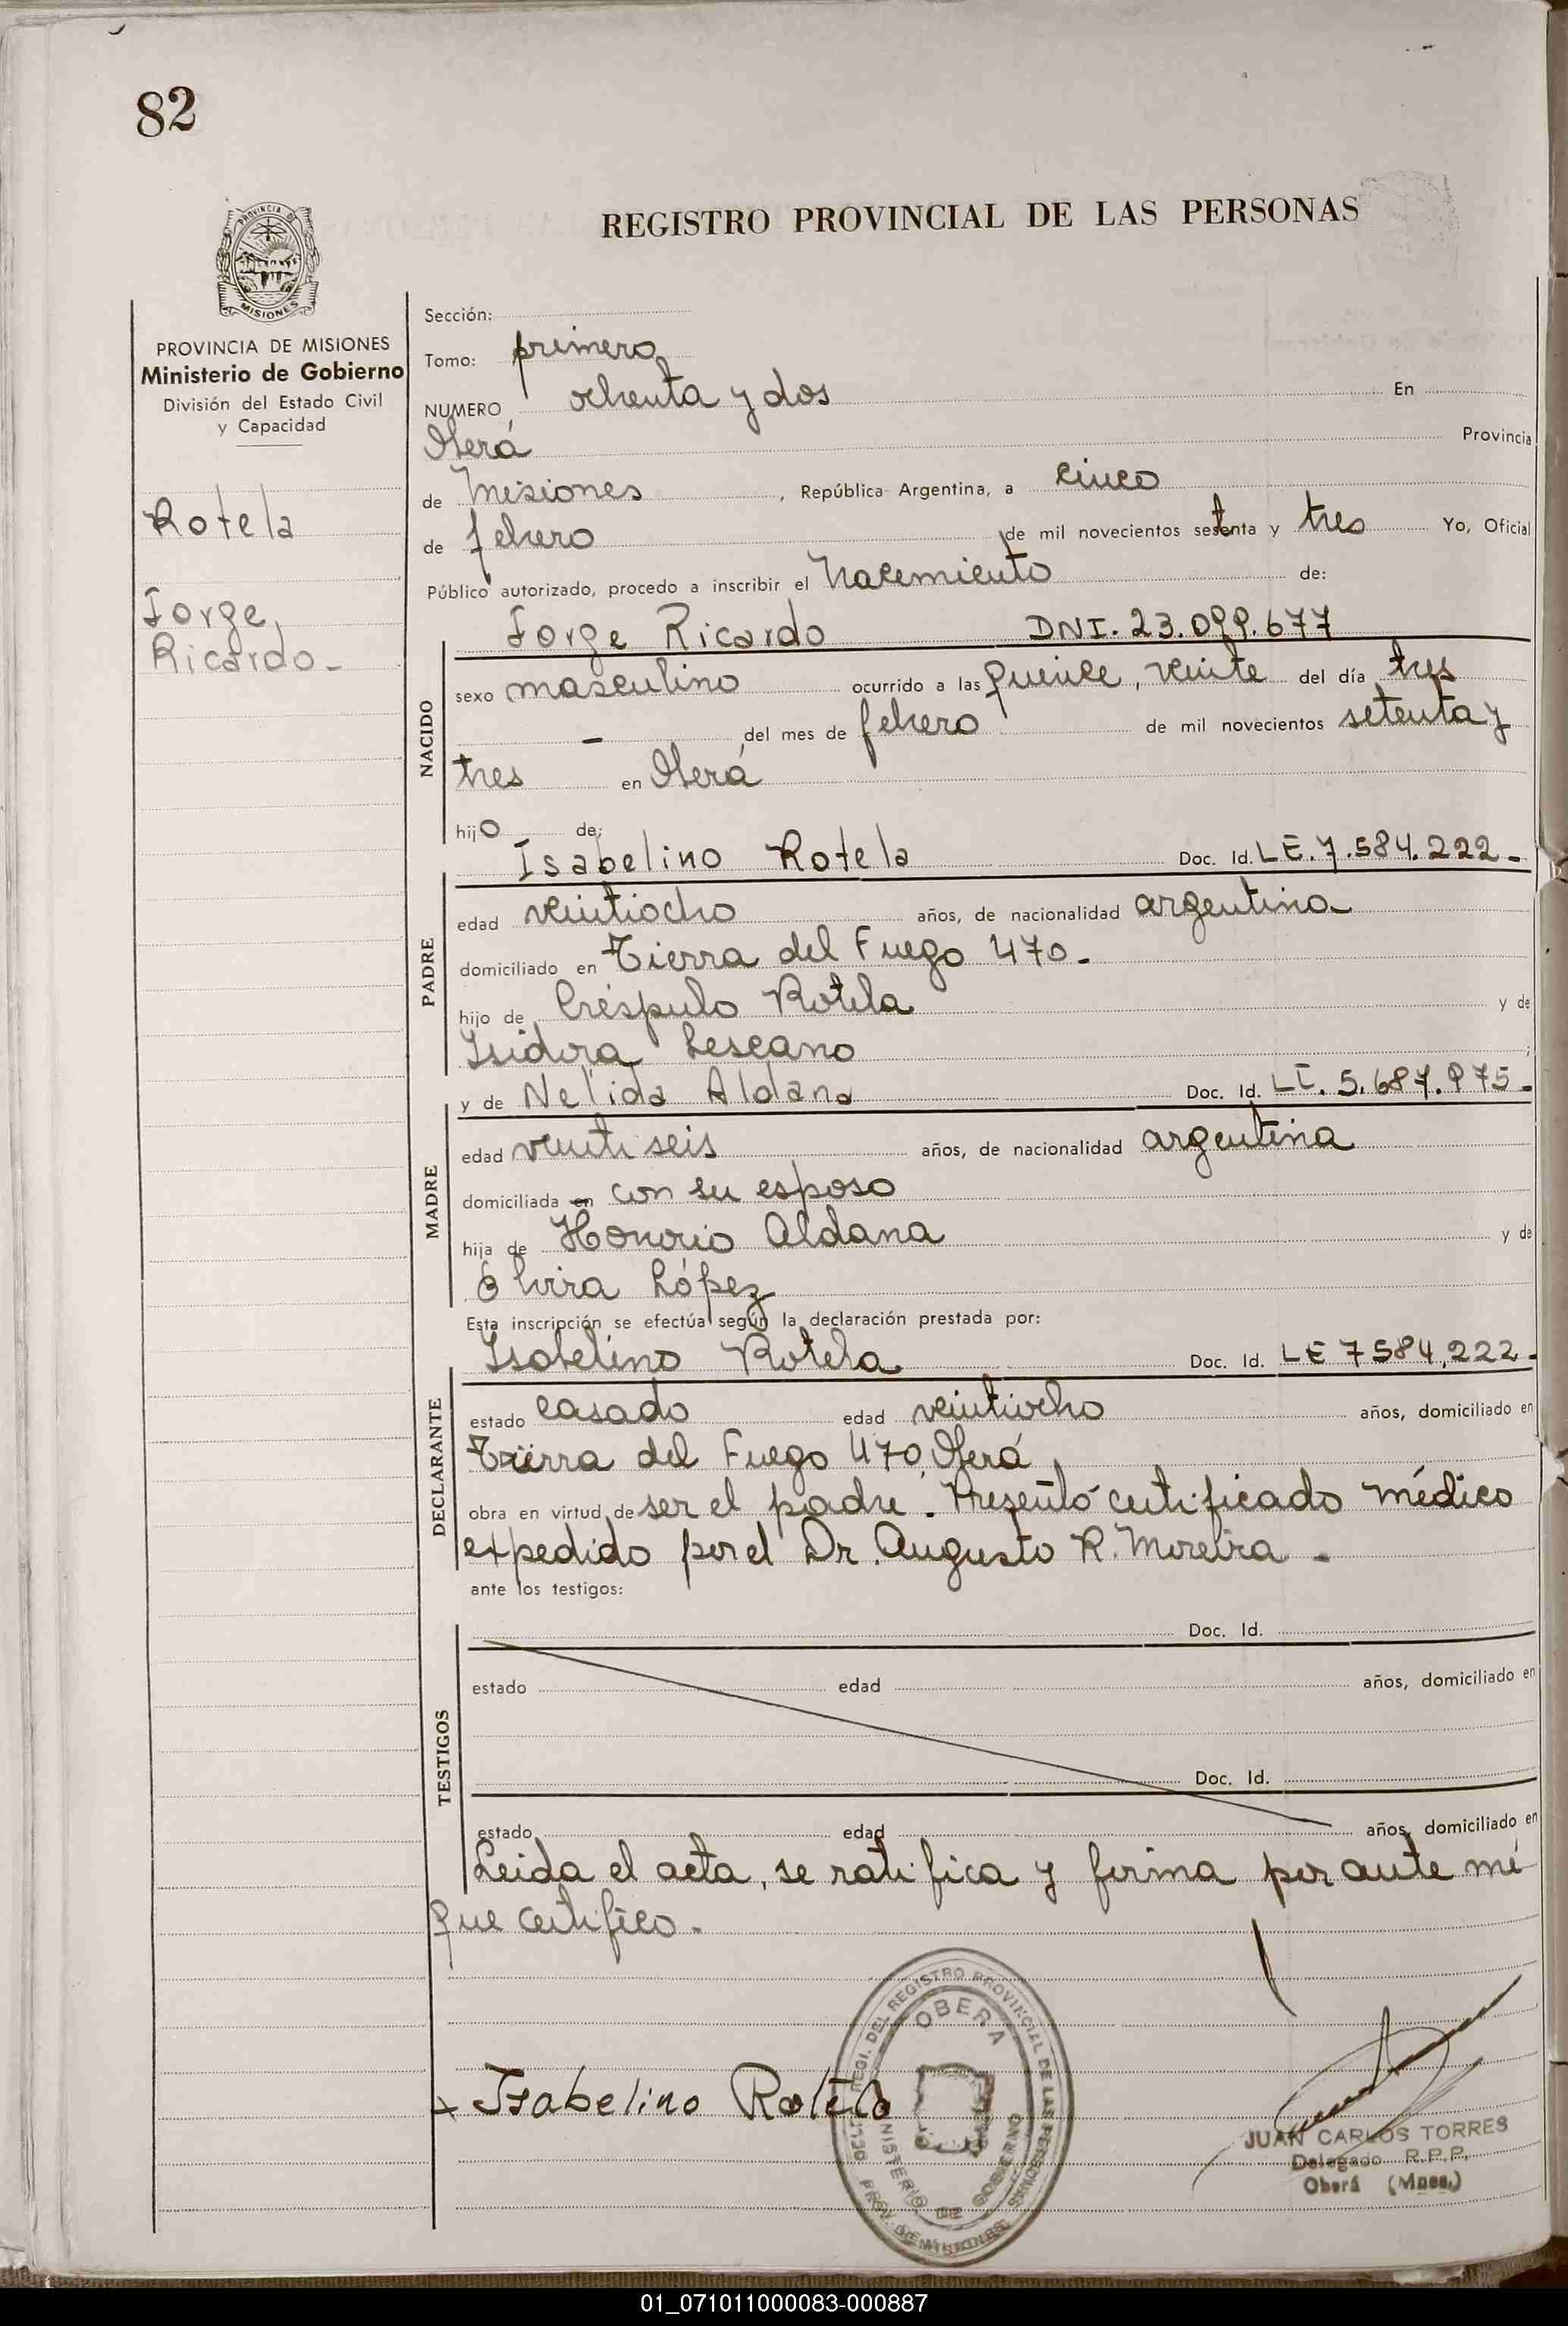 82
PROVINCIA DE
MISIONES
REGISTRO PROVINCIAL DE LAS PERSONAS
PROVINCIA DE MISIONES
Ministerio de Gobierno
División del Estado Civil
y Capacidad
Rotela
Jorge
Ricardo-
Sección:
Tomo: primero
NUMERO ochenta y dos En
Oberá Provincia
de Misiones, República Argentina, a cinco
de febrero de mil novecientos setenta y tres Yo, Oficial
Público autorizado, procedo a inscribir el Nacimiento de:
Jorge Ricardo DNI. 23.099.677
NACIDO
sexo masculino ocurrido a las quince, veinte del día tres
- del mes de febrero de mil novecientos setenta y
tres en Oberá
hijo de:
Isabelino Rotela Doc. Id. LE. 7.584.222-
PADRE
edad veintiocho años, de nacionalidad argentina
domiciliado en Tierra del Fuego 470-
hijo de Créspulo Rotela y de
Isidora Lescano ;
y de Nelida Aldana Doc. Id. LC. 5.687.975-
MADRE
edad veinti seis años, de nacionalidad argentina
domiciliada en con su esposo
hija de Honorio Aldana y de
Elvira López
Esta inscripción se efectúa según la declaración prestada por:
Isabelino Rotela Doc. Id. LE 7584.222-
DECLARANTE
estado casado edad veintiocho años, domiciliado en
Tierra del Fuego 470, Oberá
obra en virtud de ser el padre. Presentó certificado médico
expedido por el Dr. Augusto R. Moreira -
ante los testigos:
TESTIGOS
Doc. Id.
estado edad años, domiciliado en
Doc. Id.
estado edad años, domiciliado en
Leida el acta, se ratifica y firma por ante mí
que certifico.-
Isabelino Rotela
REGISTRO PROVINCIAL DE LAS PERSONAS
OBERA
MINISTERIO DE GOBIERNO
PROV. DE MISIONES
JUAN CARLOS TORRES
Delegado R.P.P.
Oberá (Mnes.)
01_071011000083-000887